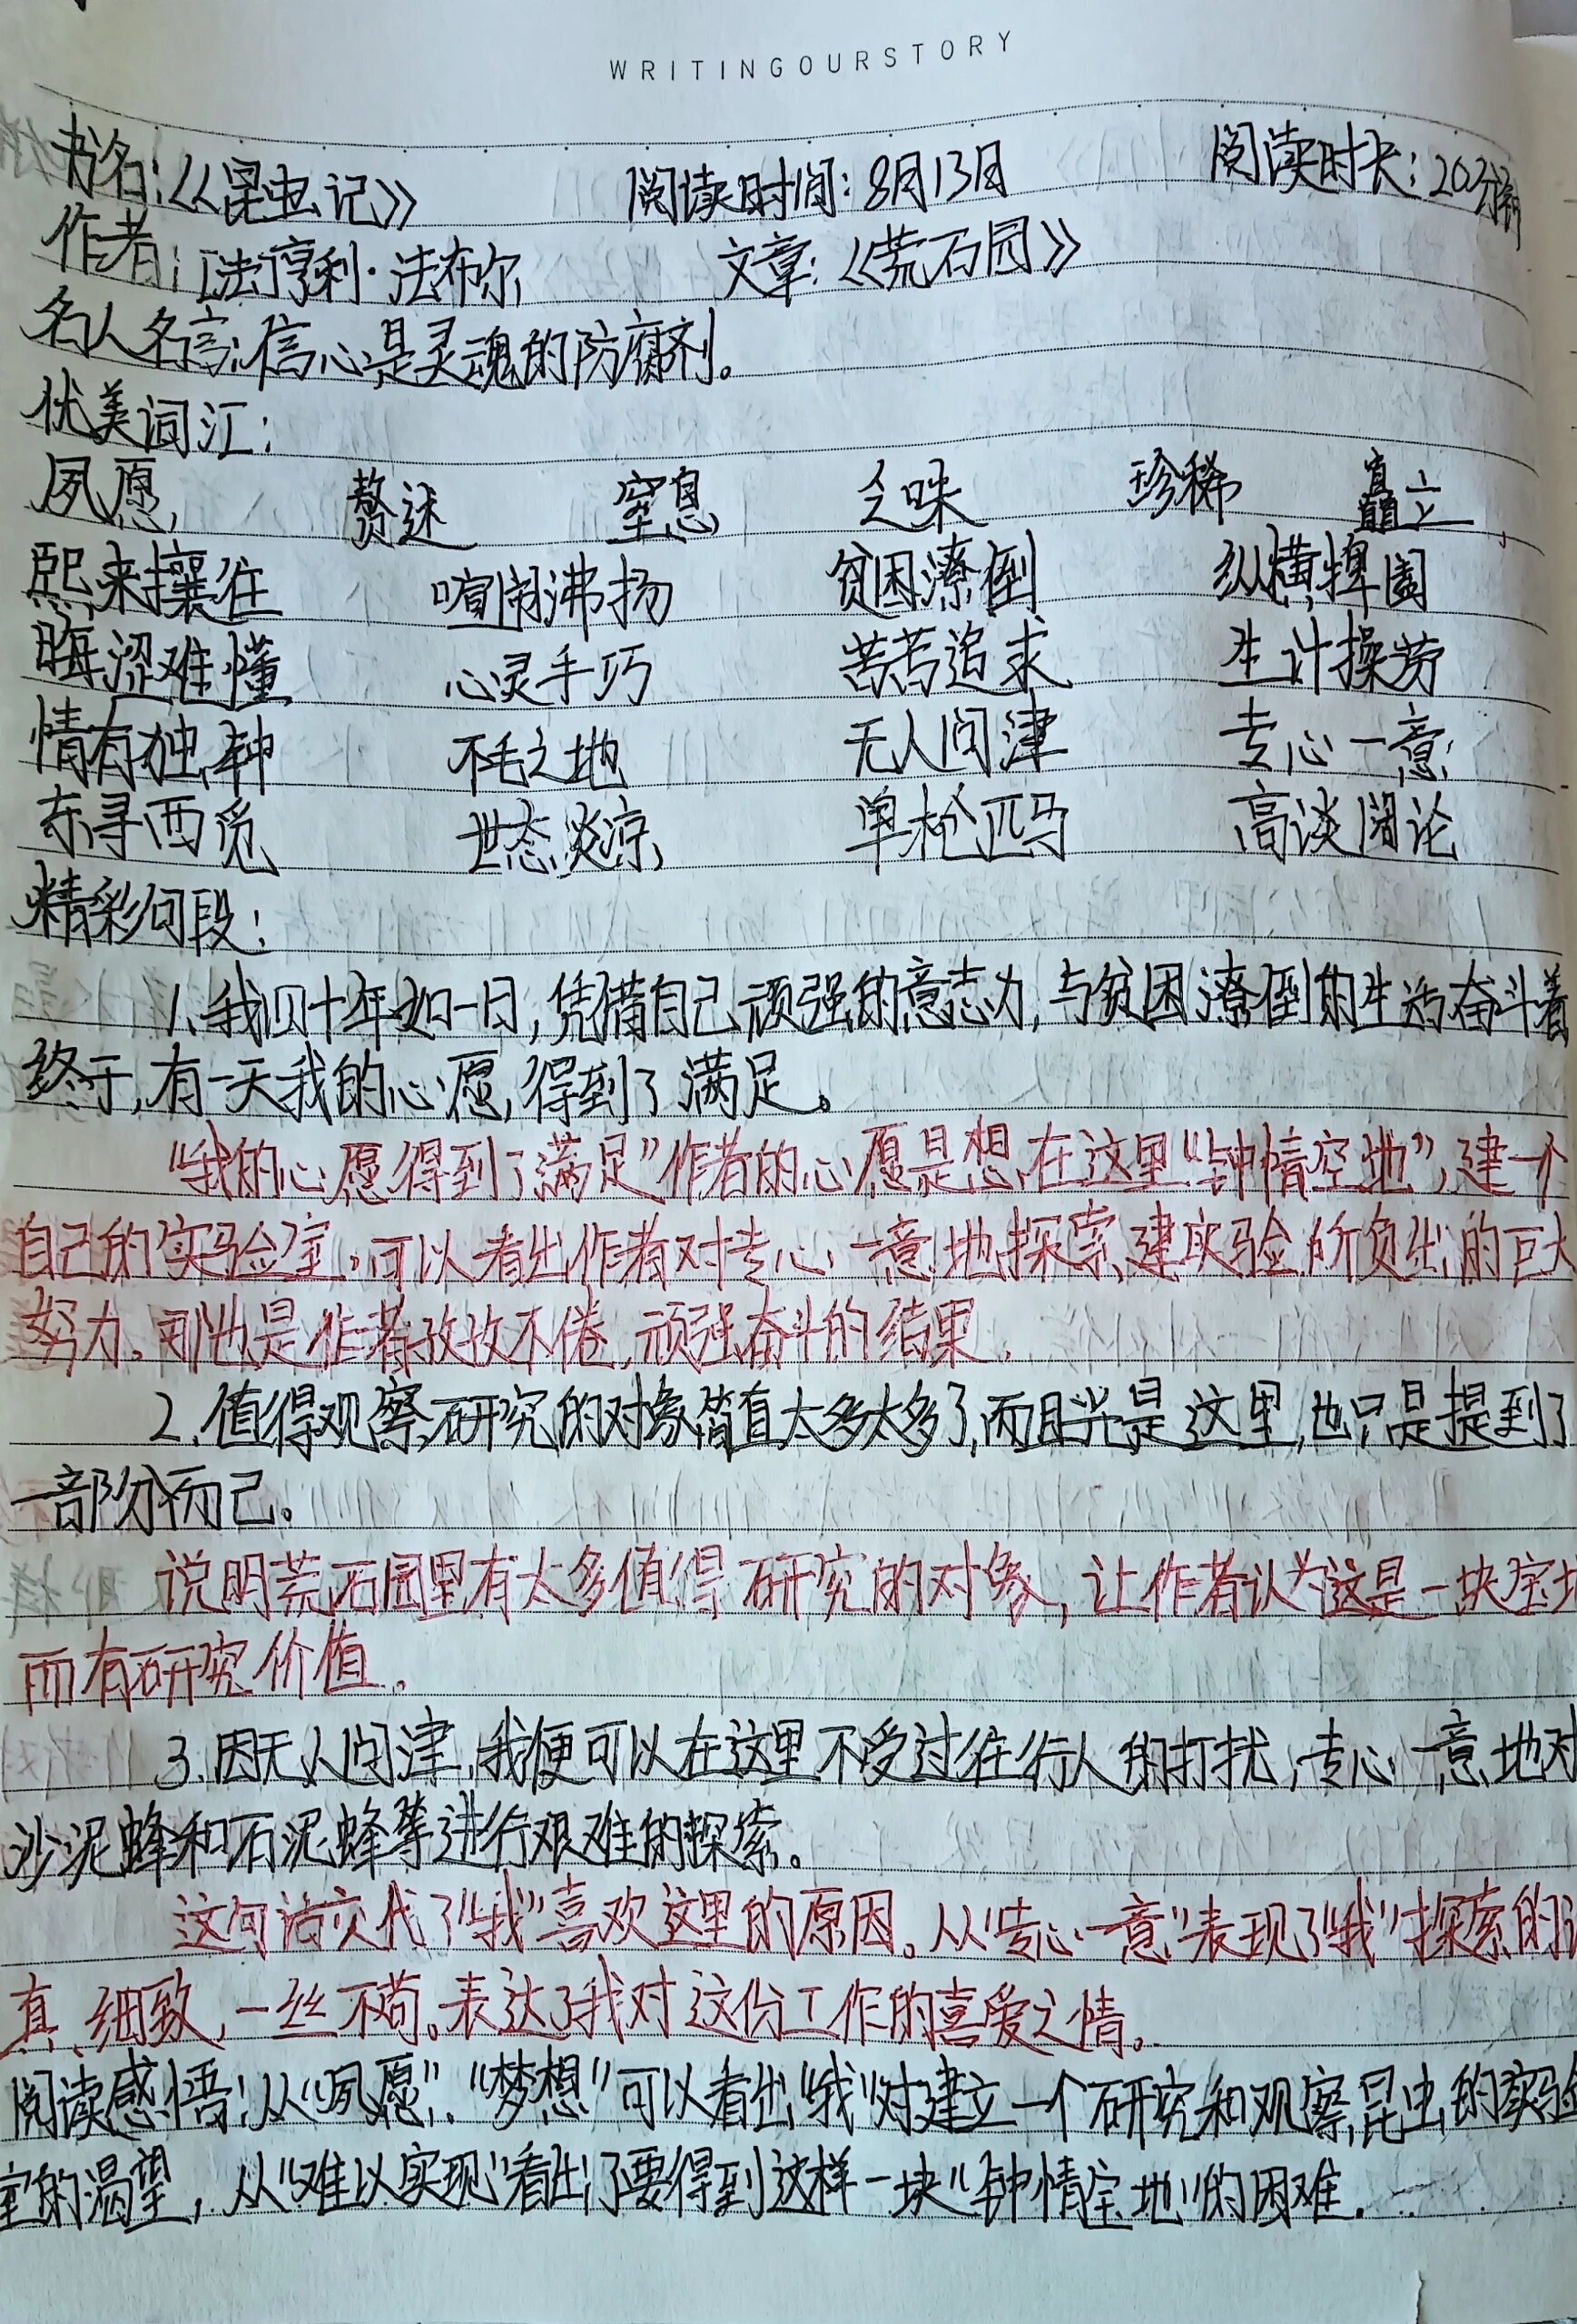 WRITINGOURSTORY
书名:《昆虫记》 阅读时间:8月13日 阅读时长:20分钟
作者:[法]亨利·法布尔 文章:《荒石园》
名人名言:信心是灵魂的防腐剂。
优美词汇:
夙愿 赘述 窒息 乏味 珍稀 矗立
熙来攘往 喧闹沸扬 贫困潦倒 纵横捭阖
晦涩难懂 心灵手巧 苦苦追求 生计操劳
情有独钟 不毛之地 无人问津 专心一意
东寻西觅 世态炎凉 单枪匹马 高谈阔论
精彩句段:
1.我四十年如一日,凭借自己顽强的意志力,与贫困潦倒的生活奋斗着
终于,有一天我的心愿得到了满足。
“我的心愿得到了满足”作者的心愿是想在这里“钟情宝地”,建一个
自己的实验室。可以看出作者对专心一意地探索,建实验所负出的巨大
努力。刚也是作者孜孜不倦,顽强奋斗的结果。
2.值得观察研究的对象简直太多太多了,而且光是这里,也只是提到了
一部份而已。
说明荒石园里有太多值得研究的对象,让作者认为这是一块宝地
而有研究价值。
3.因无人问津,我便可以在这里不受过往行人的打扰,专心一意地对
沙泥蜂和石泥蜂等进行艰难的探索。
这句话交代了“我”喜欢这里的原因。从“专心一意”表现了“我”探索的认
真、细致,一丝不苟。表达了我对这份工作的喜爱之情。
阅读感悟:从“夙愿”、“梦想”可以看出“我”对建立一个研究和观察昆虫的实验
室的渴望,从“难以实现”看出了要得到这样一块“钟情宝地”的困难。